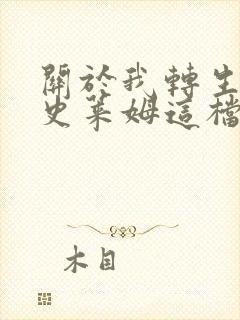 關於我轉生
史萊姆這檔
木目